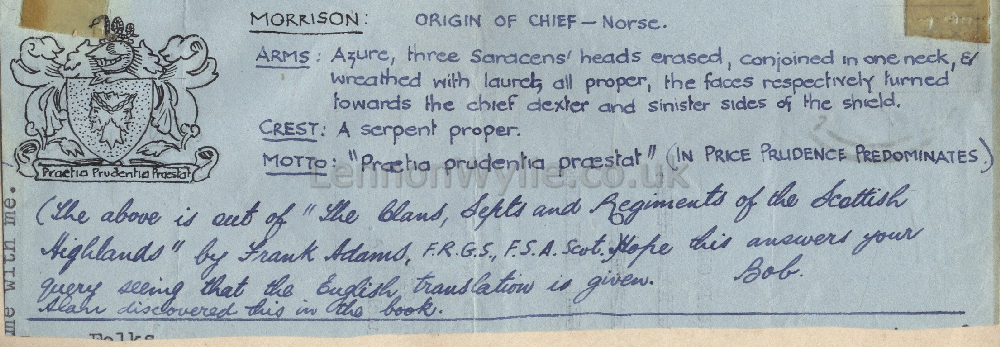 MORRISON: ORIGIN OF CHIEF – NORSE.
ARMS: Azure, three Saracens' heads erased, conjoined in one neck, &
wreathed with laurel, all proper, the faces respectively turned
towards the chief dexter and sinister sides of the shield.
CREST: A serpent proper.
MOTTO: "Prætia prudentia præstat" (IN PRICE PRUDENCE PREDOMINATES.)
Prætia Prudentia Præstat
LennonWylie.co.uk
(The above is out of "The Clans, Septs and Regiments of the Scottish
Highlands" by Frank Adams, F.R.G.S., F.S.A. Scot.) Hope this answers your
query seeing that the English translation is given. Bob.
Alan discovered this in the book.
me with me.
Folks